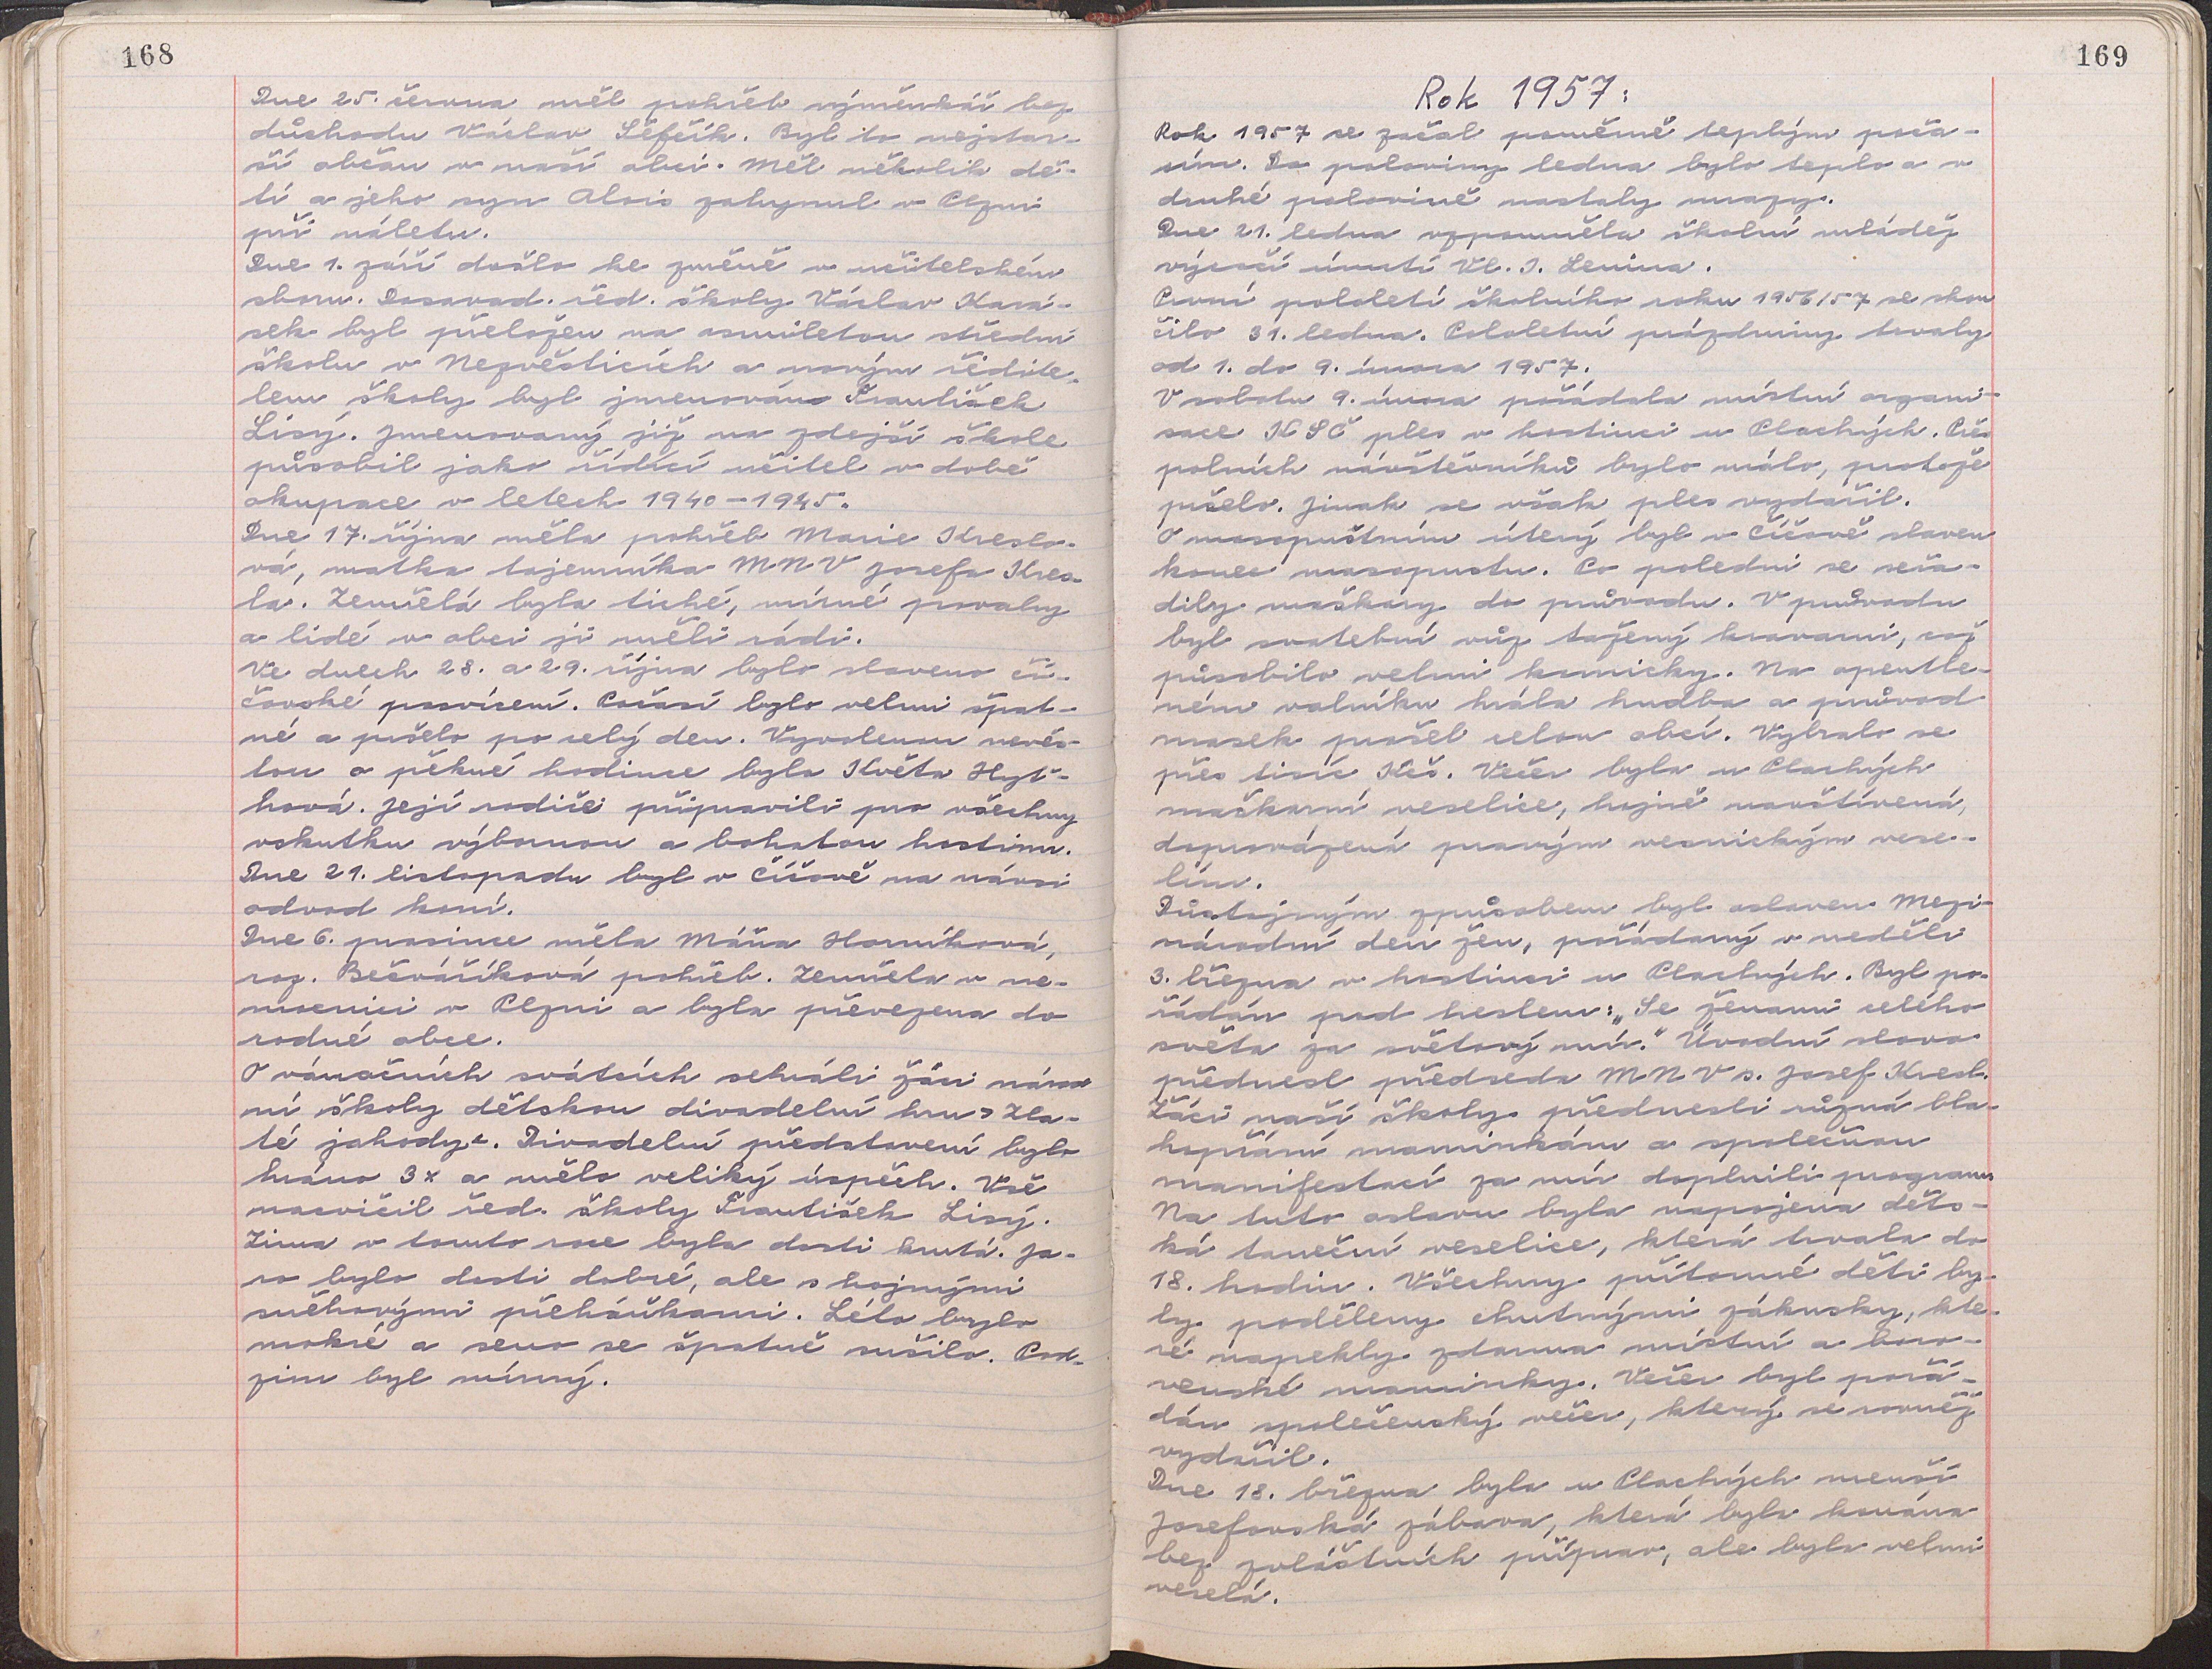 168
Dne 25. června měl pohřeb výměnkář bez
důchodu Václav Šefčík. Byl to nejstar-
ší občan v naší obci. Měl několik dě-
tí a jeho syn Alois zahynul v Plzni
při náletu.
Dne 1. září došlo ke změně v učitelském
sboru. Dosavad. řed. školy Václav Kará-
sek byl přeložen na osmiletou střední
školu v Nezvěsticích a novým ředite-
lem školy byl jmenován František
Lisý. Jmenovaný již na zdejší škole
působil jako řídící učitel v době
okupace v letech 1940-1945.
Dne 17. října měla pohřeb Marie Kreslo-
vá, matka tajemníka MNV Josefa Kres-
la. Zemřelá byla tiché, mírné povahy
a lidé v obci ji měli rádi.
Ve dnech 28. a 29. října bylo slaveno čí-
čovské posvícení. Počasí bylo velmi špat-
né a pršelo po celý den. Vyvolenou nevěs-
tou o pěkné hodince byla Květa Hyť-
hová. Její rodiče připravili pro všechny
vskutku výbornou a bohatou hostinu.
Dne 21. listopadu byl v Číčově na návsi
odvod koní.
Dne 6. prosince měla Máňa Horníková,
roz. Bečváříková pohřeb. Zemřela v ne-
mocnici v Plzni a byla převezena do
rodné obce.
O vánočních svátcích sehráli žáci národ
ní školy dětskou divadelní hru "Zla-
té jahody". Divadelní představení bylo
hráno 3x a mělo veliký úspěch. Vše
nacvičil řed. školy František Lisý.
Zima v tomto roce byla dosti krutá. Ja-
ro bylo dosti dobré, ale s hojnými
sněhovými přeháňkami. Léto bylo
mokré a seno se špatně sušilo. Pod-
zim byl mírný.
169
Rok 1957:
Rok 1957 se začal poměrně teplým poča-
sím. Do poloviny ledna bylo teplo a v
druhé polovině nastaly mrazy.
Dne 21. ledna vzpomněla školní mládež
výročí úmrtí Vl. I. Lenina.
První pololetí školního roku 1956/57 se skon
čilo 31. ledna. Pololetní prázdniny trvaly
od 1. do 9. února 1957.
V sobotu 9. února pořádala místní organi-
sace KSČ ples v hostinci u Plachých. Přes
polních návštěvníků bylo málo, protože
pršelo. Jinak se však ples vydařil.
O masopustním úterý byl v Číčově slaven
konec masopustu. Po poledni se seřa-
dily maškary do průvodu. V průvodu
byl svatební vůz tažený kravami, což
působilo velmi komicky. Na opentle-
ném valníku hrála hudba a průvod
masek prošel celou obcí. Vybralo se
přes tisíc Kčs. Večer byla u Plachých
maškarní veselice, hojně navštívená,
doprovázená pravým vesnickým vese-
lím.
Důstojným způsobem byl oslaven Mezi-
národní den žen, pořádaný v neděli
3. března v hostinci u Plachých. Byl po-
řádán pod heslem: „Se ženami celého
světa za světový mír." Úvodní slovo
přednesl předseda MNV s. Josef Kresl.
Žáci naší školy přednesli různá bla-
hopřání maminkám a společnou
manifestací za mír doplnili program
Na tuto oslavu byla napojena děts-
ká taneční veselice, která trvala do
18. hodin. Všechny přítomné děti by-
ly poděleny chutnými zákusky, kte-
ré napekly zdarma místní a boro-
venské maminky. Večer byl pořá-
dán společenský večer, který se rovněž
vydařil.
Dne 18. března byla u Plachých menší
Josefovská zábava, která byla konána
bez zvláštních příprav, ale byla velmi
veselá.